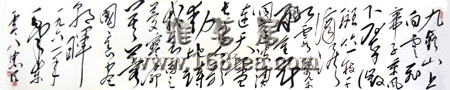 九嶷山上
白云飞
帝子乘风
下翠微
斑竹一枝千
滴泪
红霞万朵
百重衣
洞庭波涌
连天雪
长岛人歌
动地诗
我欲因之
梦寥廓
芙蓉
国里尽
朝晖
一九六一年
毛泽东